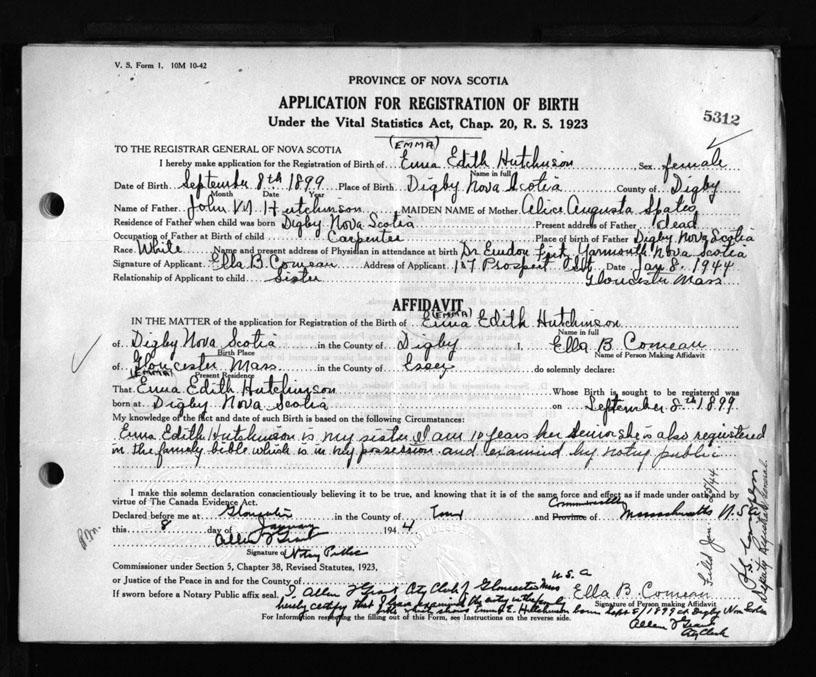 V. S. Form 1. 10M 10-42
PROVINCE OF NOVA SCOTIA
APPLICATION FOR REGISTRATION OF BIRTH
5312
Under the Vital Statistics Act, Chap. 20, R. S. 1923
(EMMA)
TO THE REGISTRAR GENERAL OF NOVA SCOTIA
I hereby make application for the Registration of Birth of Emma Edith Hutchinson Sex female
Name in full
Date of Birth September 8th 1899 Place of Birth Digby Nova Scotia County of Digby
Month Date Year
Name of Father John M. Hutchinson MAIDEN NAME of Mother Alice Augusta
Residence of Father when child was born Digby Nova Scotia Present address of Father Dead
Occupation of Father at Birth of child Carpenter Place of birth of Father Digby Nova Scotia
Race White Name and present address of Physician in attendance at birth Dr Yarmouth Nova Scotia
Signature of Applicant Ella B. Comeau Address of Applicant 157 Prospect Date Jan 8. 1944
Relationship of Applicant to child Sister Gloucester Mass
AFFIDAVIT
(EMMA)
IN THE MATTER of the application for Registration of the Birth of Emma Edith Hutchinson
Name in full
of Digby Nova Scotia in the County of Digby I, Ella B. Comeau
Birth Place Name of Person Making Affidavit
of Gloucester Mass. in the County of Essex do solemnly declare:
(EMMA) Present Residence
That Emma Edith Hutchinson Whose Birth is sought to be registered was
born at Digby Nova Scotia on September 8th 1899
My knowledge of the fact and date of such Birth is based on the following Circumstances:
Emma Edith Hutchinson is my sister I am 10 years her senior she is also registered
in the family bible which is in my possession and examind by notry public
I make this solemn declaration conscientiously believing it to be true, and knowing that it is of the same force and effect as if made under oath and by
virtue of The Canada Evidence Act.
Commonwealth
Declared before me at Gloucester in the County of and Province of Massachusetts U.S.
this 8 day of January 1944
Allen Grant
Signature of Notary Public
Commissioner under Section 5, Chapter 38, Revised Statutes, 1923,
or Justice of the Peace in and for County of
U.S.A
If sworn before a Notary Public affix seal. I, Allen Grant City Clerk of Gloucester Mass Ella B. Comeau
Signature of Person making Affidavit
hereby certify that I have examined the entry in the family
bible which shows Emma E. Hutchinson born Sept 8/1899 at Digby Nova Scotia
For Information respecting the filling out of this Form, see Instructions on the reverse side.
Allen Grant
City Clerk
Filed Jan 25/44.
Deputy Registrar General.